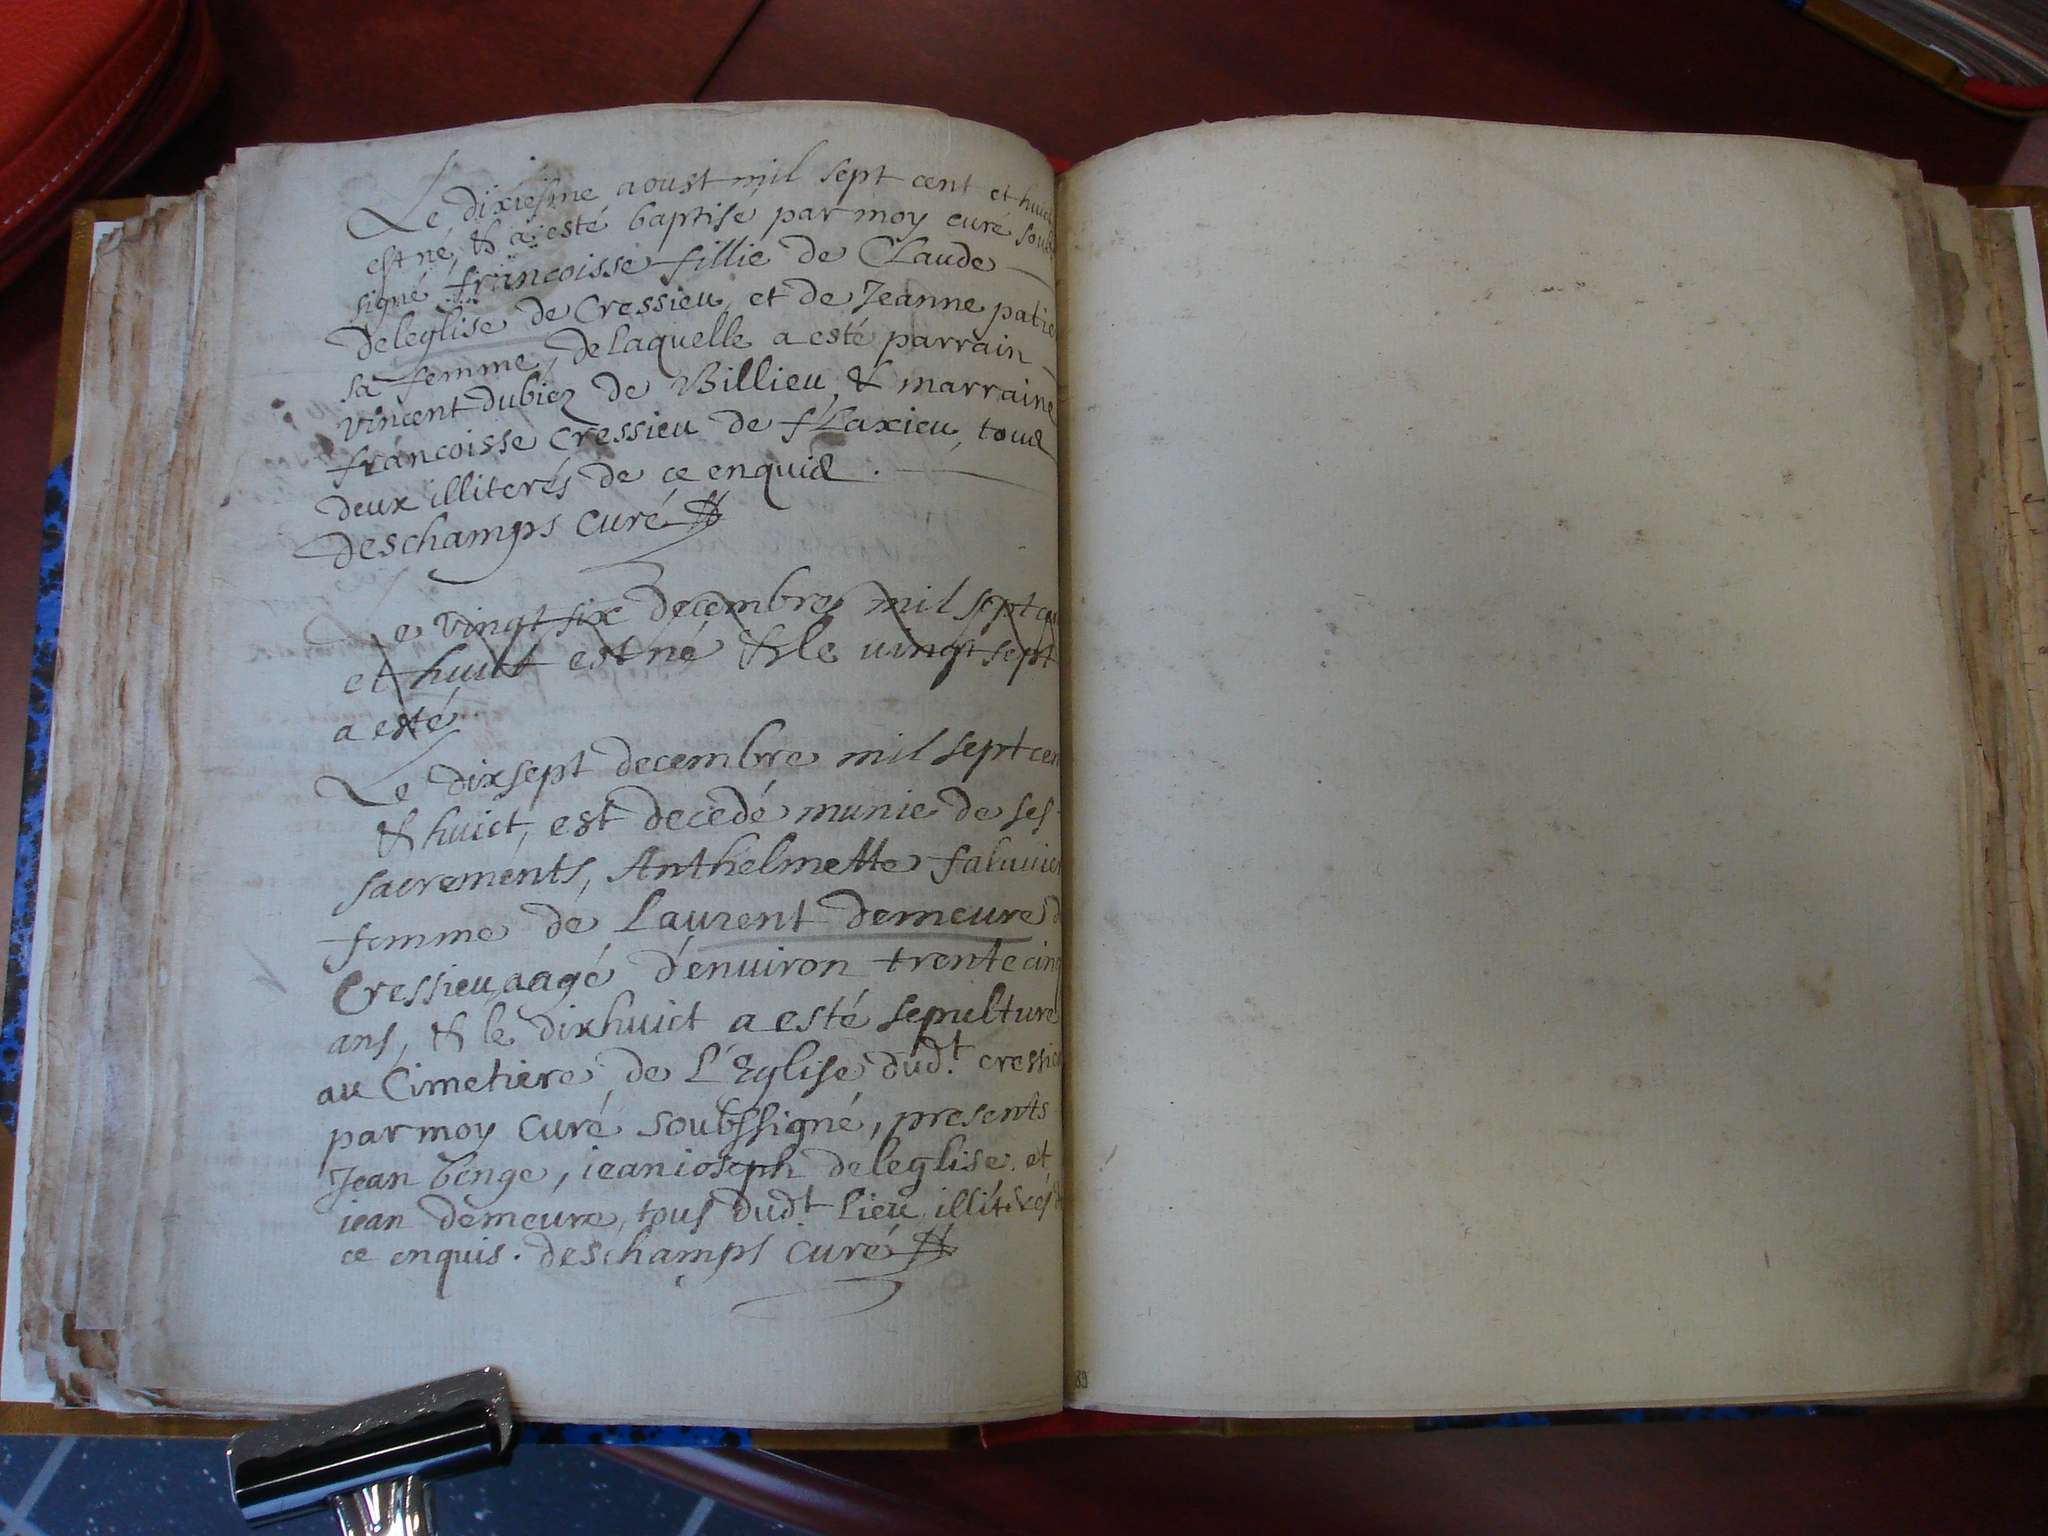 Le dixiesme aoust mil sept cent et huict
est né, & a esté baptisé par moy curé soub
signé francoisse fillie de Claude
deleglise de Cressieu, et de Jeanne
sa femme, de laquelle a esté parrain
vincent dubiez de Billieu, & marraine
francoisse Cressieu de fLaxieu, tous
deux illiterés de ce enquis.
deschamps curé
e vingt six decembre mil sept cen
et huict est né & le vingt sept
a esté
Le dixsept decembre mil sept cen
& huict, est decedé munie de ses
sacrements, Anthelmette
femme de Laurent demeure d
Cressieu, aagé d'enuiron trente cinq
ans, & le dixhuict a esté sepulturé
au Cimetiere de L'Eglise dud.t cressieu
par moy Curé soubssigné, presents
Jean benge, iean ioseph deleglise et
iean demeure, tous dud.t Lieu illiterés
ce enquis. deschamps curé
89